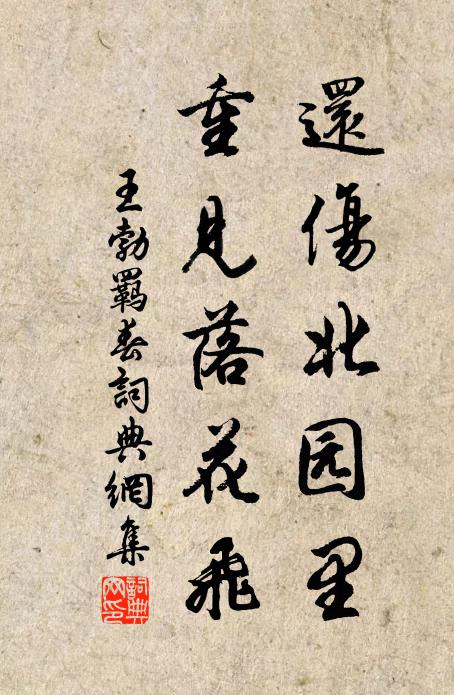 還傷北园里
重見落花飛
王勃羈春詞典網集
詞典
网印